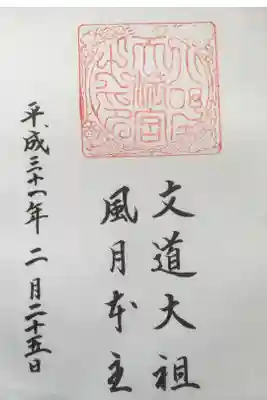 文道大祖
風月本主
平成三十一年 二月二十五日